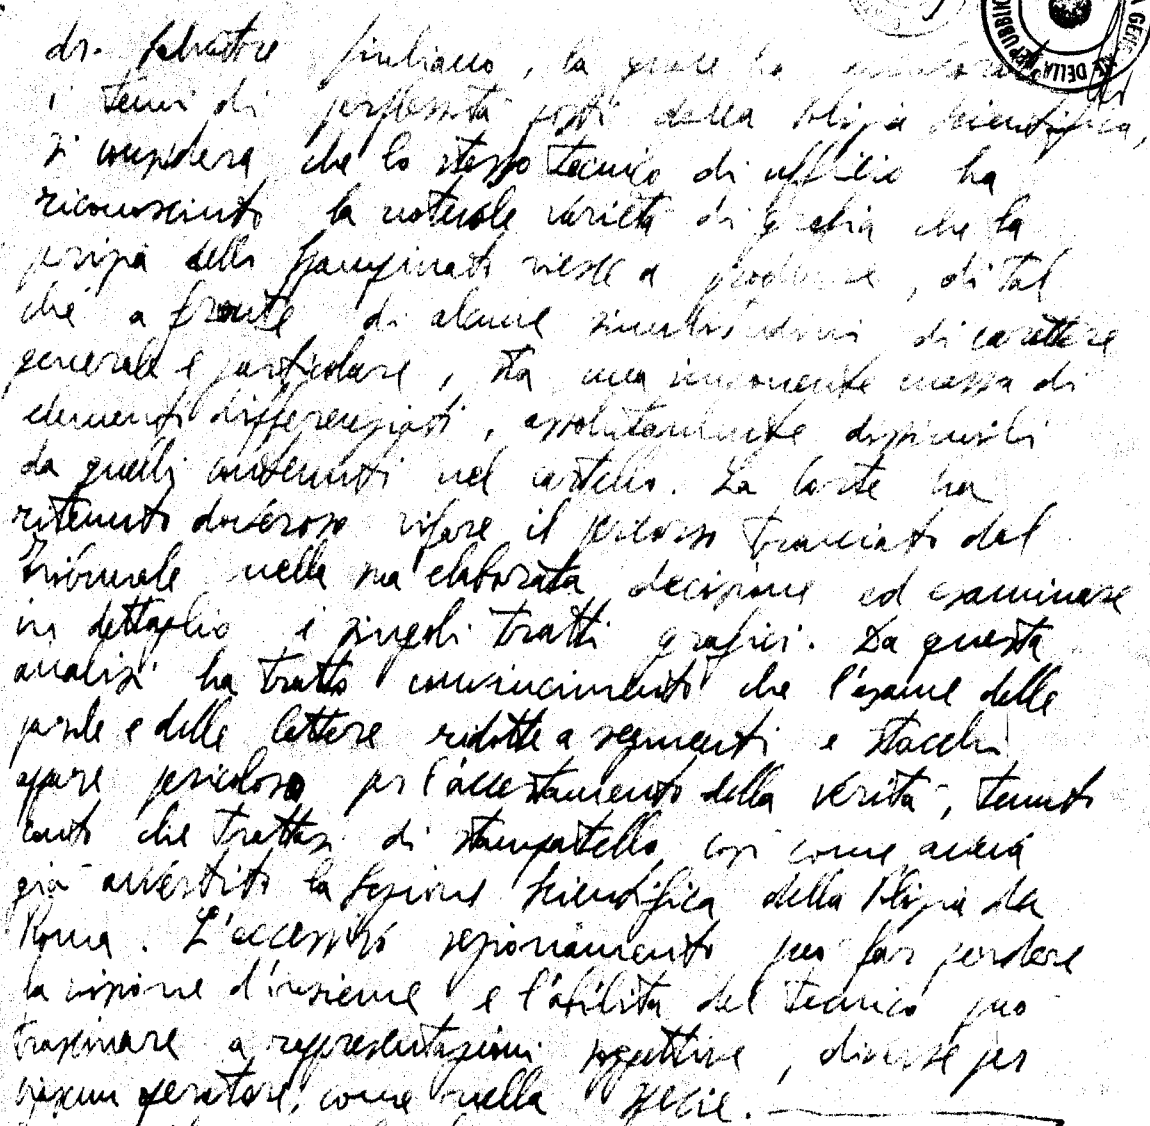 dr. Salvatore Giuliano, la quale ha
i temi di perplessità posti della Polizia Scientifica,
si considera che lo stesso tecnico di ufficio ha
riconosciuto la notevole varietà di grafia che la
grafia dello Spampinato riesce a produrre, di tal
ché a fronte di alcune similitudini di carattere
generale e particolare, sta una imponente massa di
elementi differenziati, assolutamente dissimili
da quelli contenuti nel cartello. La Corte ha
ritenuto doveroso rifare il percorso tracciato dal
Tribunale nella sua elaborata decisione ed esaminare
in dettaglio i singoli tratti grafici. Da questa
analisi ha tratto convincimento che l'esame delle
parole e delle lettere ridotte a segmenti e stacchi
appare pericoloso per l'accertamento della verità, tenuto
conto che trattasi di stampatello, così come aveva
già avvertito la Sezione Scientifica della Polizia di
Roma. L'eccessivo sezionamento può far perdere
la visione d'insieme e l'abilità del tecnico può
trascinare a rappresentazioni soggettive, diverse per
ciascun operatore, come nella specie.
DELLA REPUBBLIC